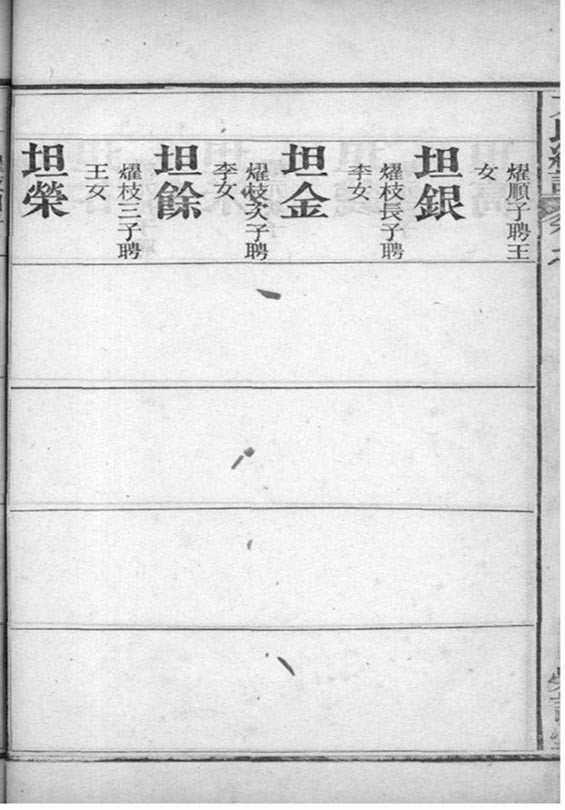 燿順子聘王
女
坦銀
燿枝長子聘
李女
坦金
燿枝次子聘
李女
坦餘
燿枝三子聘
王女
坦榮